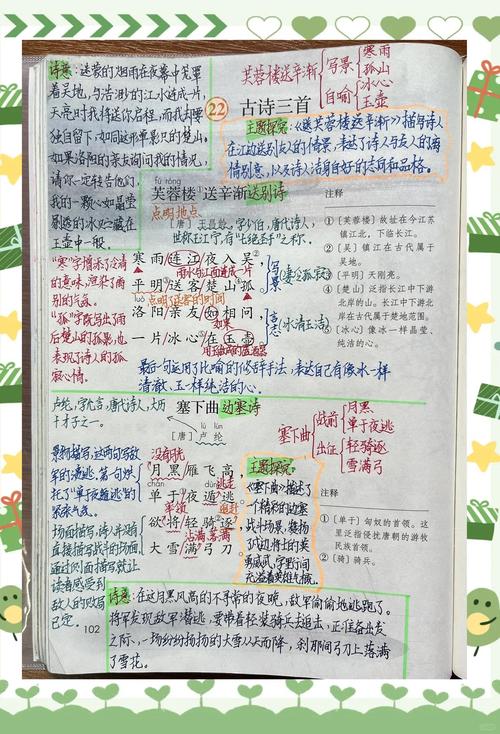 诗意：迷蒙的烟雨在夜幕中笼罩
着吴地，与浩渺的江水连成一片，
天亮时我将送你启程，而我却要
独自留下，如同这形单影只的楚山。
如果洛阳的亲友询问我的情况，
请你一定转告他们，
我的一颗心如晶莹
剔透的冰贮藏在
玉壶中一般。
芙蓉楼送辛渐
写景
寒雨
孤山
自喻
冰心
玉壶
22
古诗三首
主题探究：《芙蓉楼送辛渐》描写诗人
在江边送别友人的情景，表达了诗人与友人的离
情别意，以及诗人洁身自好的志向和品格。
fú róng
芙蓉楼送辛渐 送别诗
点明地点
[唐] 王昌龄，字少伯，唐代诗人，
世称王江宁，有“七绝圣手”之称。
寒雨连江夜入吴，
雨水与江面连成一片
平明送客楚山孤。
点明送客的时间
写景
凄凉孤寂
洛阳亲友如相问，
如果
一片冰心在玉壶。
言志
冰清玉洁
最后一句运用了比喻的修辞手法，表达自己有像冰一样
清澈、玉一样纯洁的心。
“寒”字增添了冷清
的意味，渲染了离
别的气氛。
“孤”既写出了雨
后楚山的孤影，也
表现了诗人的孤
寂心情。
注释
①〔芙蓉楼〕故址在今江苏
镇江北，下临长江。
②〔吴〕镇江在古代属于
吴地。
③〔平明〕天刚亮。
④〔楚山〕泛指长江中下游
北岸的山。长江中下游北
岸在古代属于楚地范围。
⑤〔冰心〕像冰一样晶莹、
纯洁的心。
卢纶，字允言，唐代诗人，大历
十才子之一。
塞下曲 边塞诗
lú lún
[唐] 卢纶
塞下曲
战前
月黑
单于夜遁
出征
轻骑逐
雪满弓
没有月光
月黑雁飞高，
chán dùn
单于夜遁逃。
逃走
率领
追赶
欲将轻骑逐，
沾满
大雪满弓刀。
主题探究：
《塞下曲》描述了
一个精彩的边塞
战斗场景，赞扬
了戍边将士的英
勇威武，字里行间
充溢着英雄气概。
注释
①〔单于〕匈奴的首领。这
里泛指侵扰唐朝的游牧
民族首领。
②〔骑〕骑兵。
景物描写，这两句写敌
军的溃逃。第一句烘
托了“单于夜遁逃”的
紧张气氛。
场面描写，诗人并没有
直接描写战斗的场面，
通过侧面描写就让
读者感受到
敌人的败局
已定。
诗意：在这月黑风高的不寻常的夜晚，敌军偷偷地逃跑了。
将军发现敌军潜逃，要带着轻装骑兵去追击，正准备出发
之际，一场纷纷扬扬的大雪从天而降，刹那间弓刀上落满
了雪花。
102